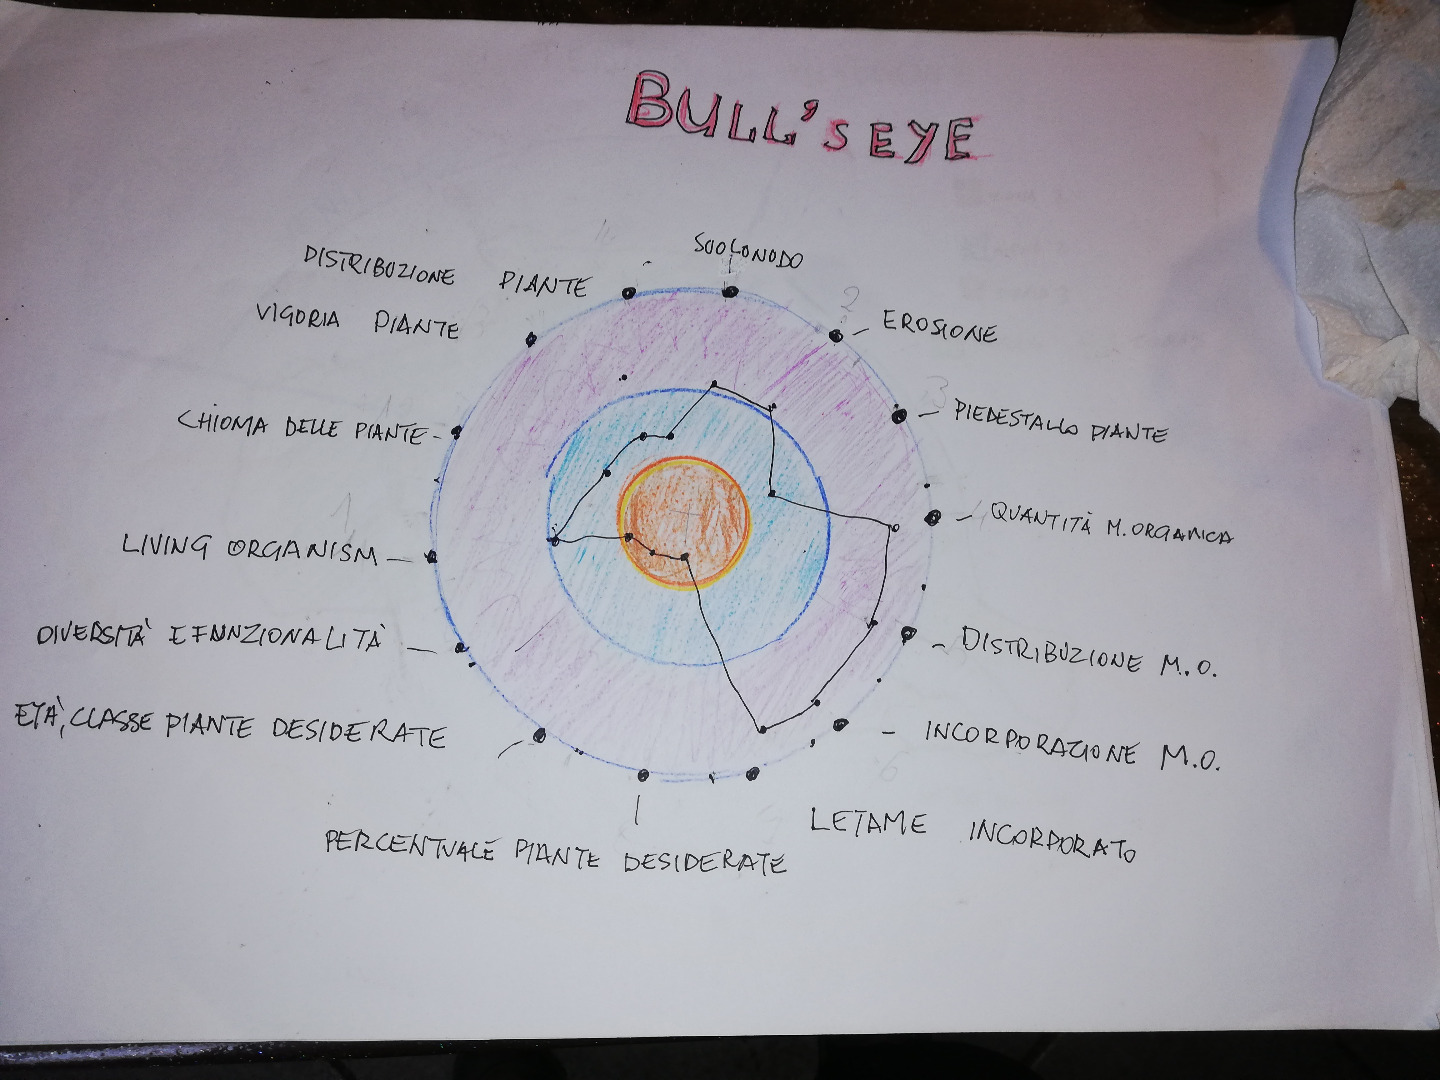 BULL'S EYE
SUOLO NUDO
DISTRIBUZIONE PIANTE
VIGORIA PIANTE
2
EROSIONE
3
PIEDESTALLO PIANTE
CHIOMA DELLE PIANTE
QUANTITÀ M. ORGANICA
LIVING ORGANISM
DIVERSITÀ E FUNZIONALITÀ
DISTRIBUZIONE M.O.
ETÀ, CLASSE PIANTE DESIDERATE
INCORPORAZIONE M.O.
6
LETAME INCORPORATO
PERCENTUALE PIANTE DESIDERATE